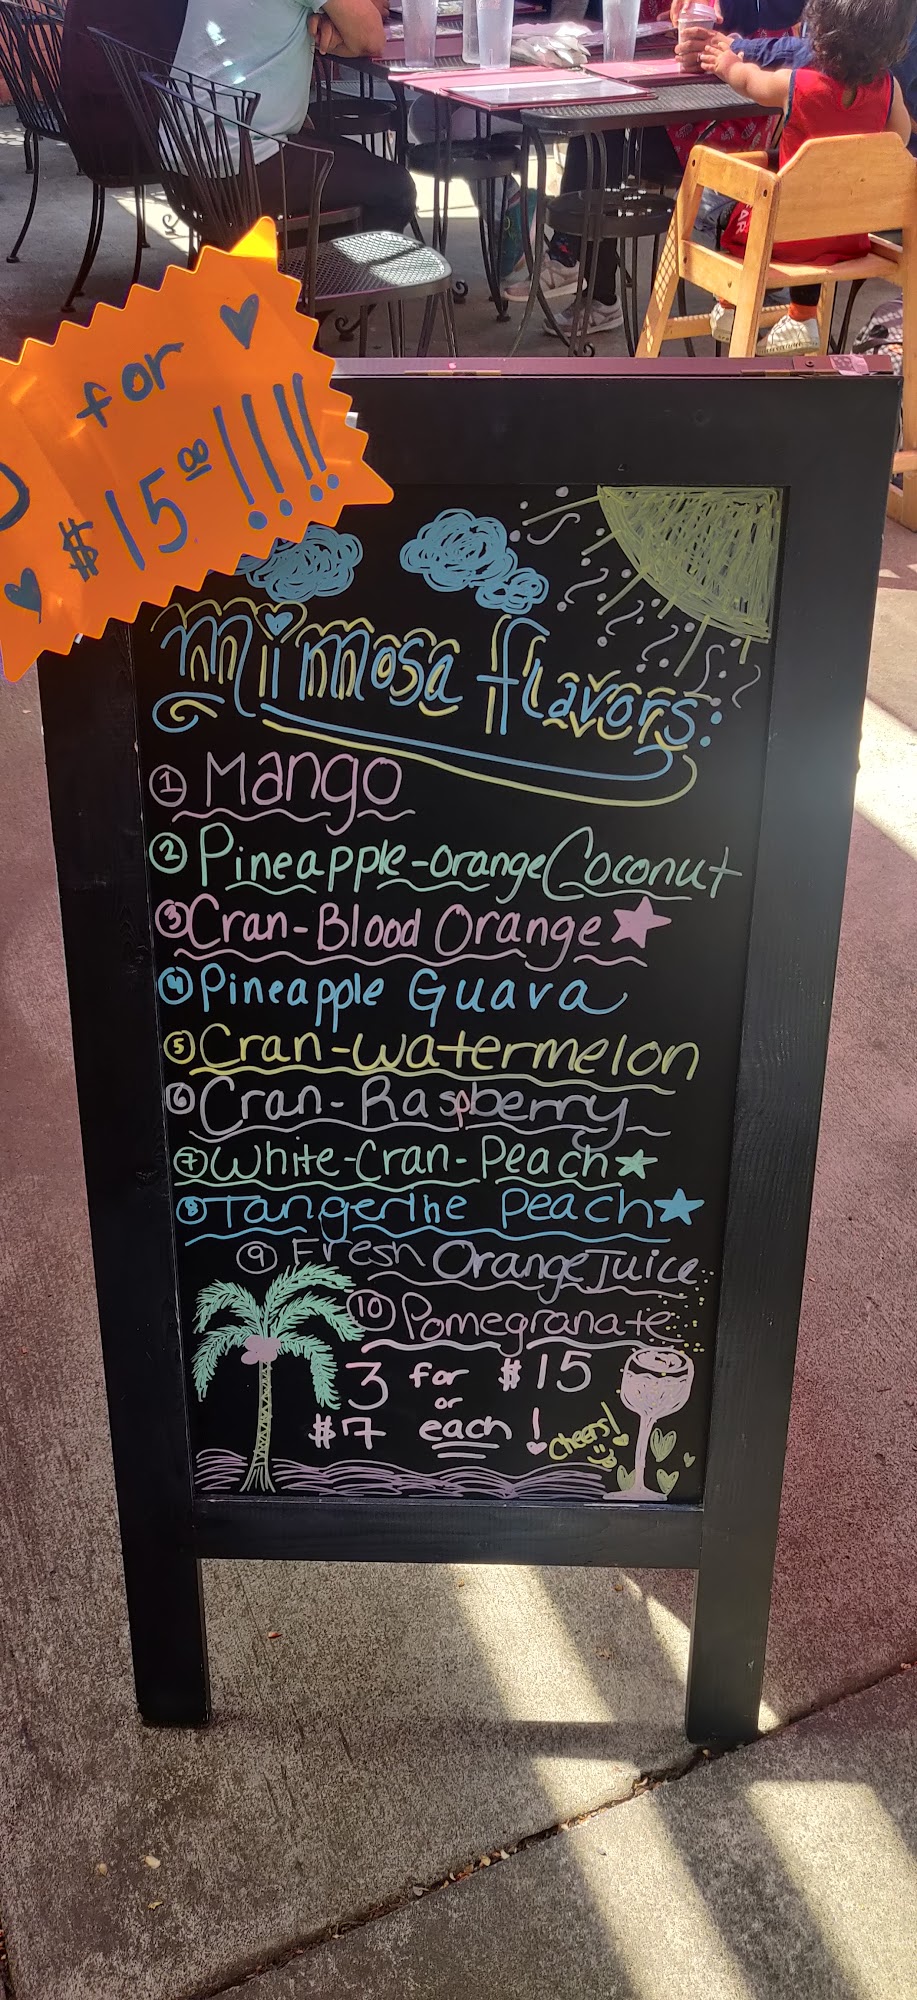 for
$15.00!!!!
mimosa flavors:
1 Mango
2 Pineapple-orange Coconut
3 Cran-Blood Orange
4 Pineapple Guava
5 Cran-Watermelon
6 Cran-Raspberry
7 White-Cran-Peach
8 Tangerine Peach
9 Fresh Orange Juice
10 Pomegranate
3 for $15
or
$7 each!
Cheers!